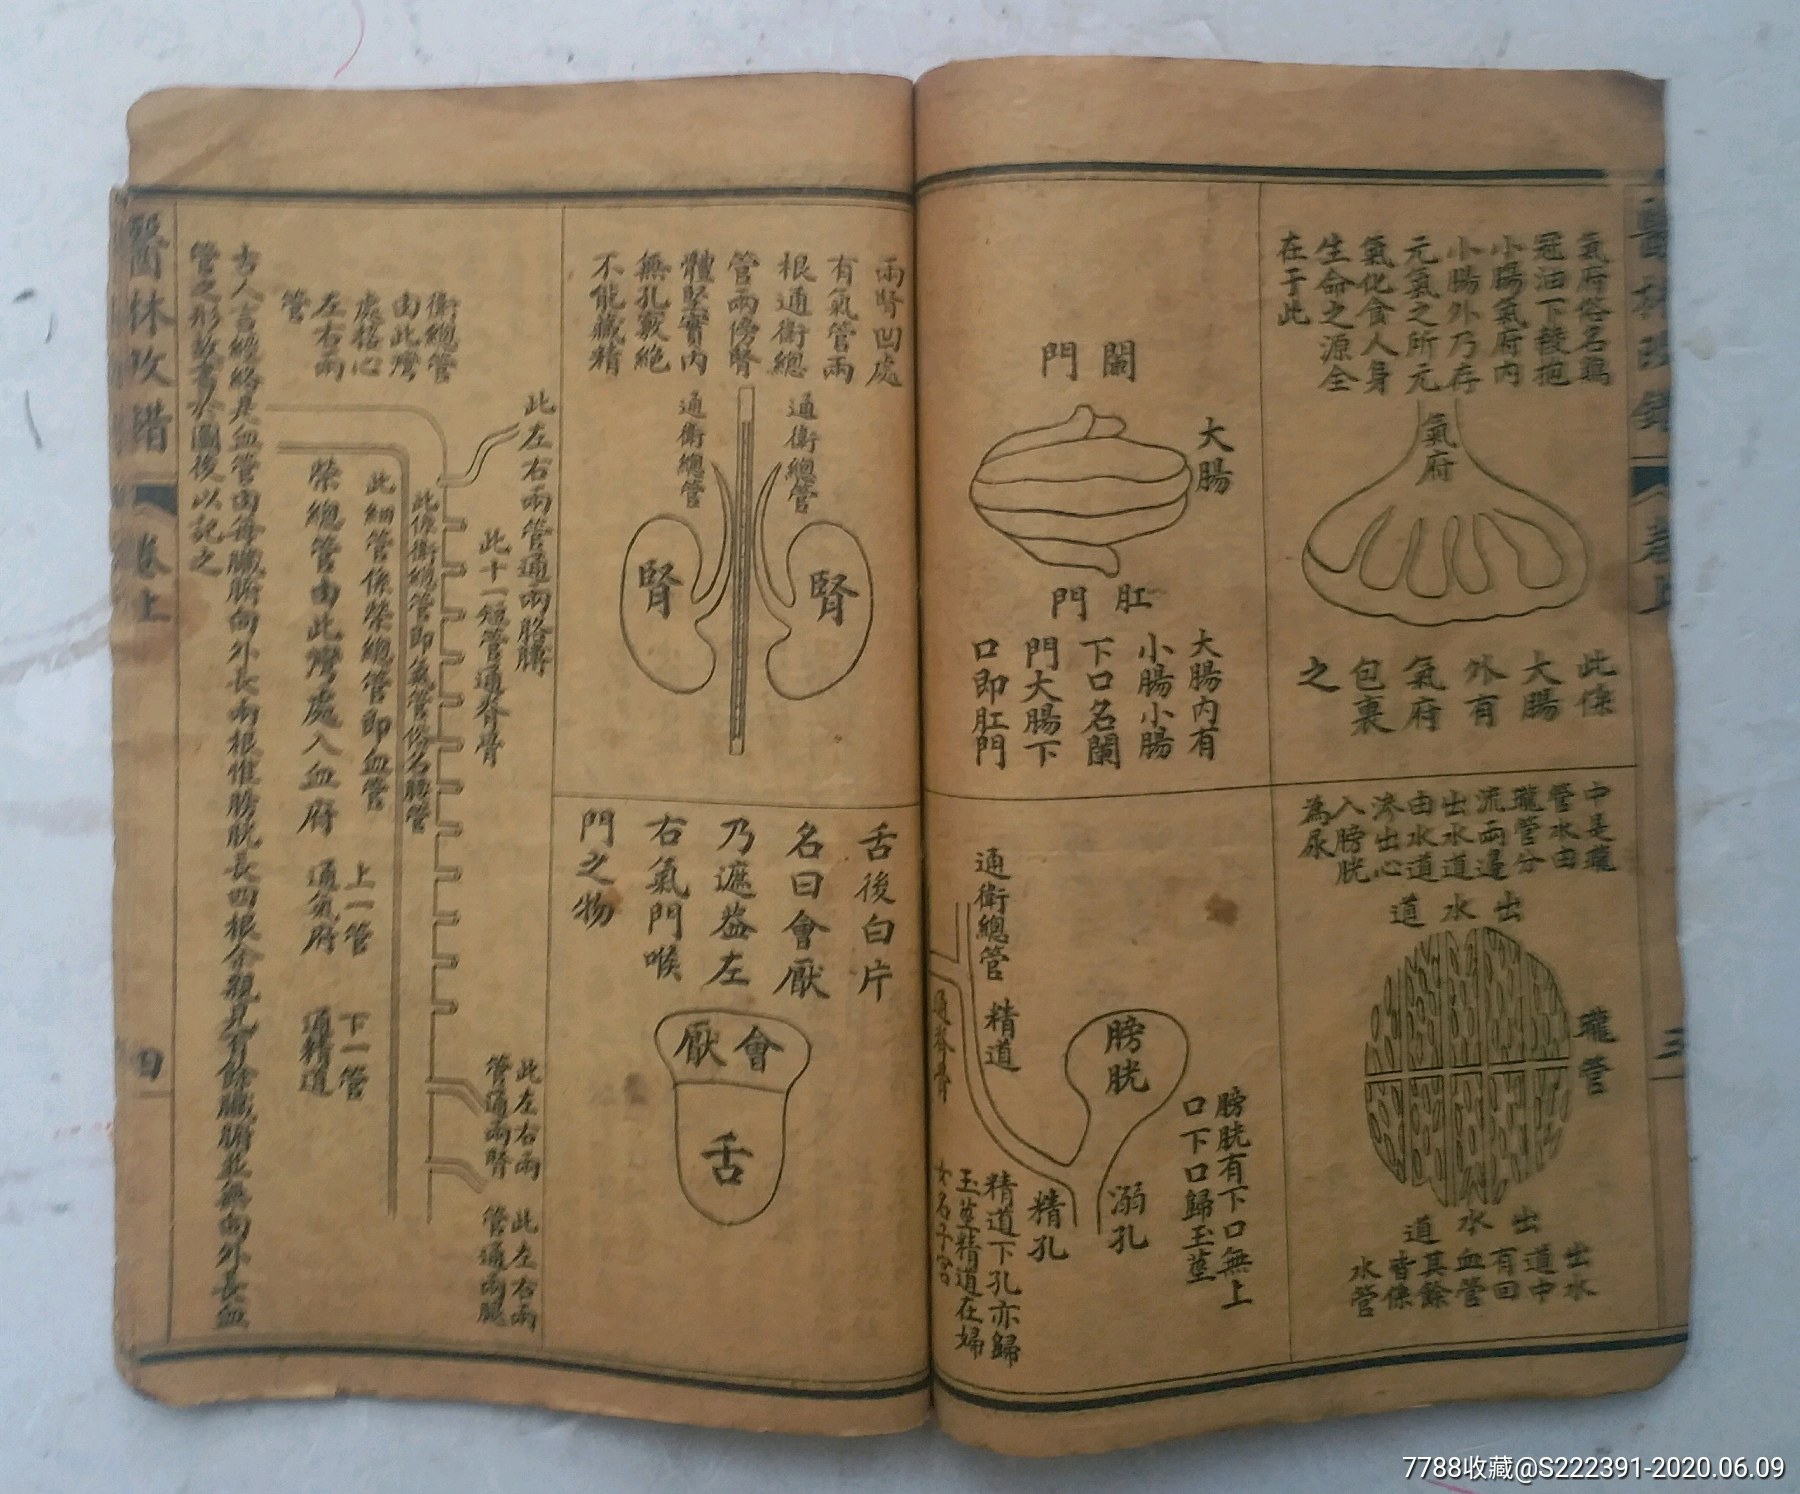 氣府俗名鷄
冠油下稜抱
小腸氣府內
小腸外乃存
元氣之所元
氣化食人身
生命之源全
在于此
氣府
此係
大腸
外有
氣府
包裹
之
中是瓏
管水由
瓏管分
流兩邊
出水道
由水道
滲出心
入膀胱
為尿
出水道
瓏管
出水道
出水
道中
有回
血管
其餘
皆係
水管
闌門
大腸
肛門
大腸內有
小腸小腸
下口名闌
門大腸下
口即肛門
通衛總管
精道
膀胱
膀胱有下口無上
口下口歸玉莖
溺孔
精孔
精道下孔亦歸
玉莖精道在婦
女名子宮
兩腎凹處
有氣管兩
根通衛總
管兩傍腎
體堅實內
無孔竅絕
不能藏精
通衛總管
通衛總管
腎
腎
舌後白片
名曰會厭
乃遮葢左
右氣門喉
門之物
會厭
舌
衛總管
由此灣
處樁心
左右兩
管
此左右兩管通兩胳膊
此十一短管通脊骨
此係衛總管即氣管俗名腰管
此細管係榮總管即血管
榮總管由此灣處入血府
上一管
通氣府
下一管
通精道
此左右兩
管通兩腎
此左右兩
管通兩腿
古人言經絡是血管由每臟腑向外長兩根惟膀胱長四根余親見百餘臟腑並無向外長血
管之形故書於圖後以記之
醫林改錯
卷上
四
三
7788收藏@S222391-2020.06.09